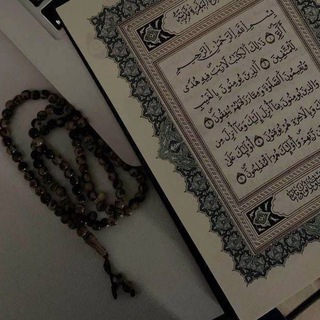 بِسْمِ اللَّهِ الرَّحْمَٰنِ الرَّحِيمِ
الٓمٓ ۝ ذَٰلِكَ الْكِتَابُ لَا رَيْبَ فِيهِ هُدًى
لِّلْمُتَّقِينَ ۝ الَّذِينَ يُؤْمِنُونَ بِالْغَيْبِ
وَيُقِيمُونَ الصَّلَاةَ وَمِمَّا رَزَقْنَاهُمْ يُنفِقُونَ ۝
وَالَّذِينَ يُؤْمِنُونَ بِمَا أُنزِلَ إِلَيْكَ وَمَا أُنزِلَ مِن
قَبْلِكَ وَبِالْآخِرَةِ هُمْ يُوقِنُونَ ۝ أُولَٰئِكَ عَلَىٰ
هُدًى مِّن رَّبِّهِمْ وَأُولَٰئِكَ هُمُ الْمُفْلِحُونَ ۝